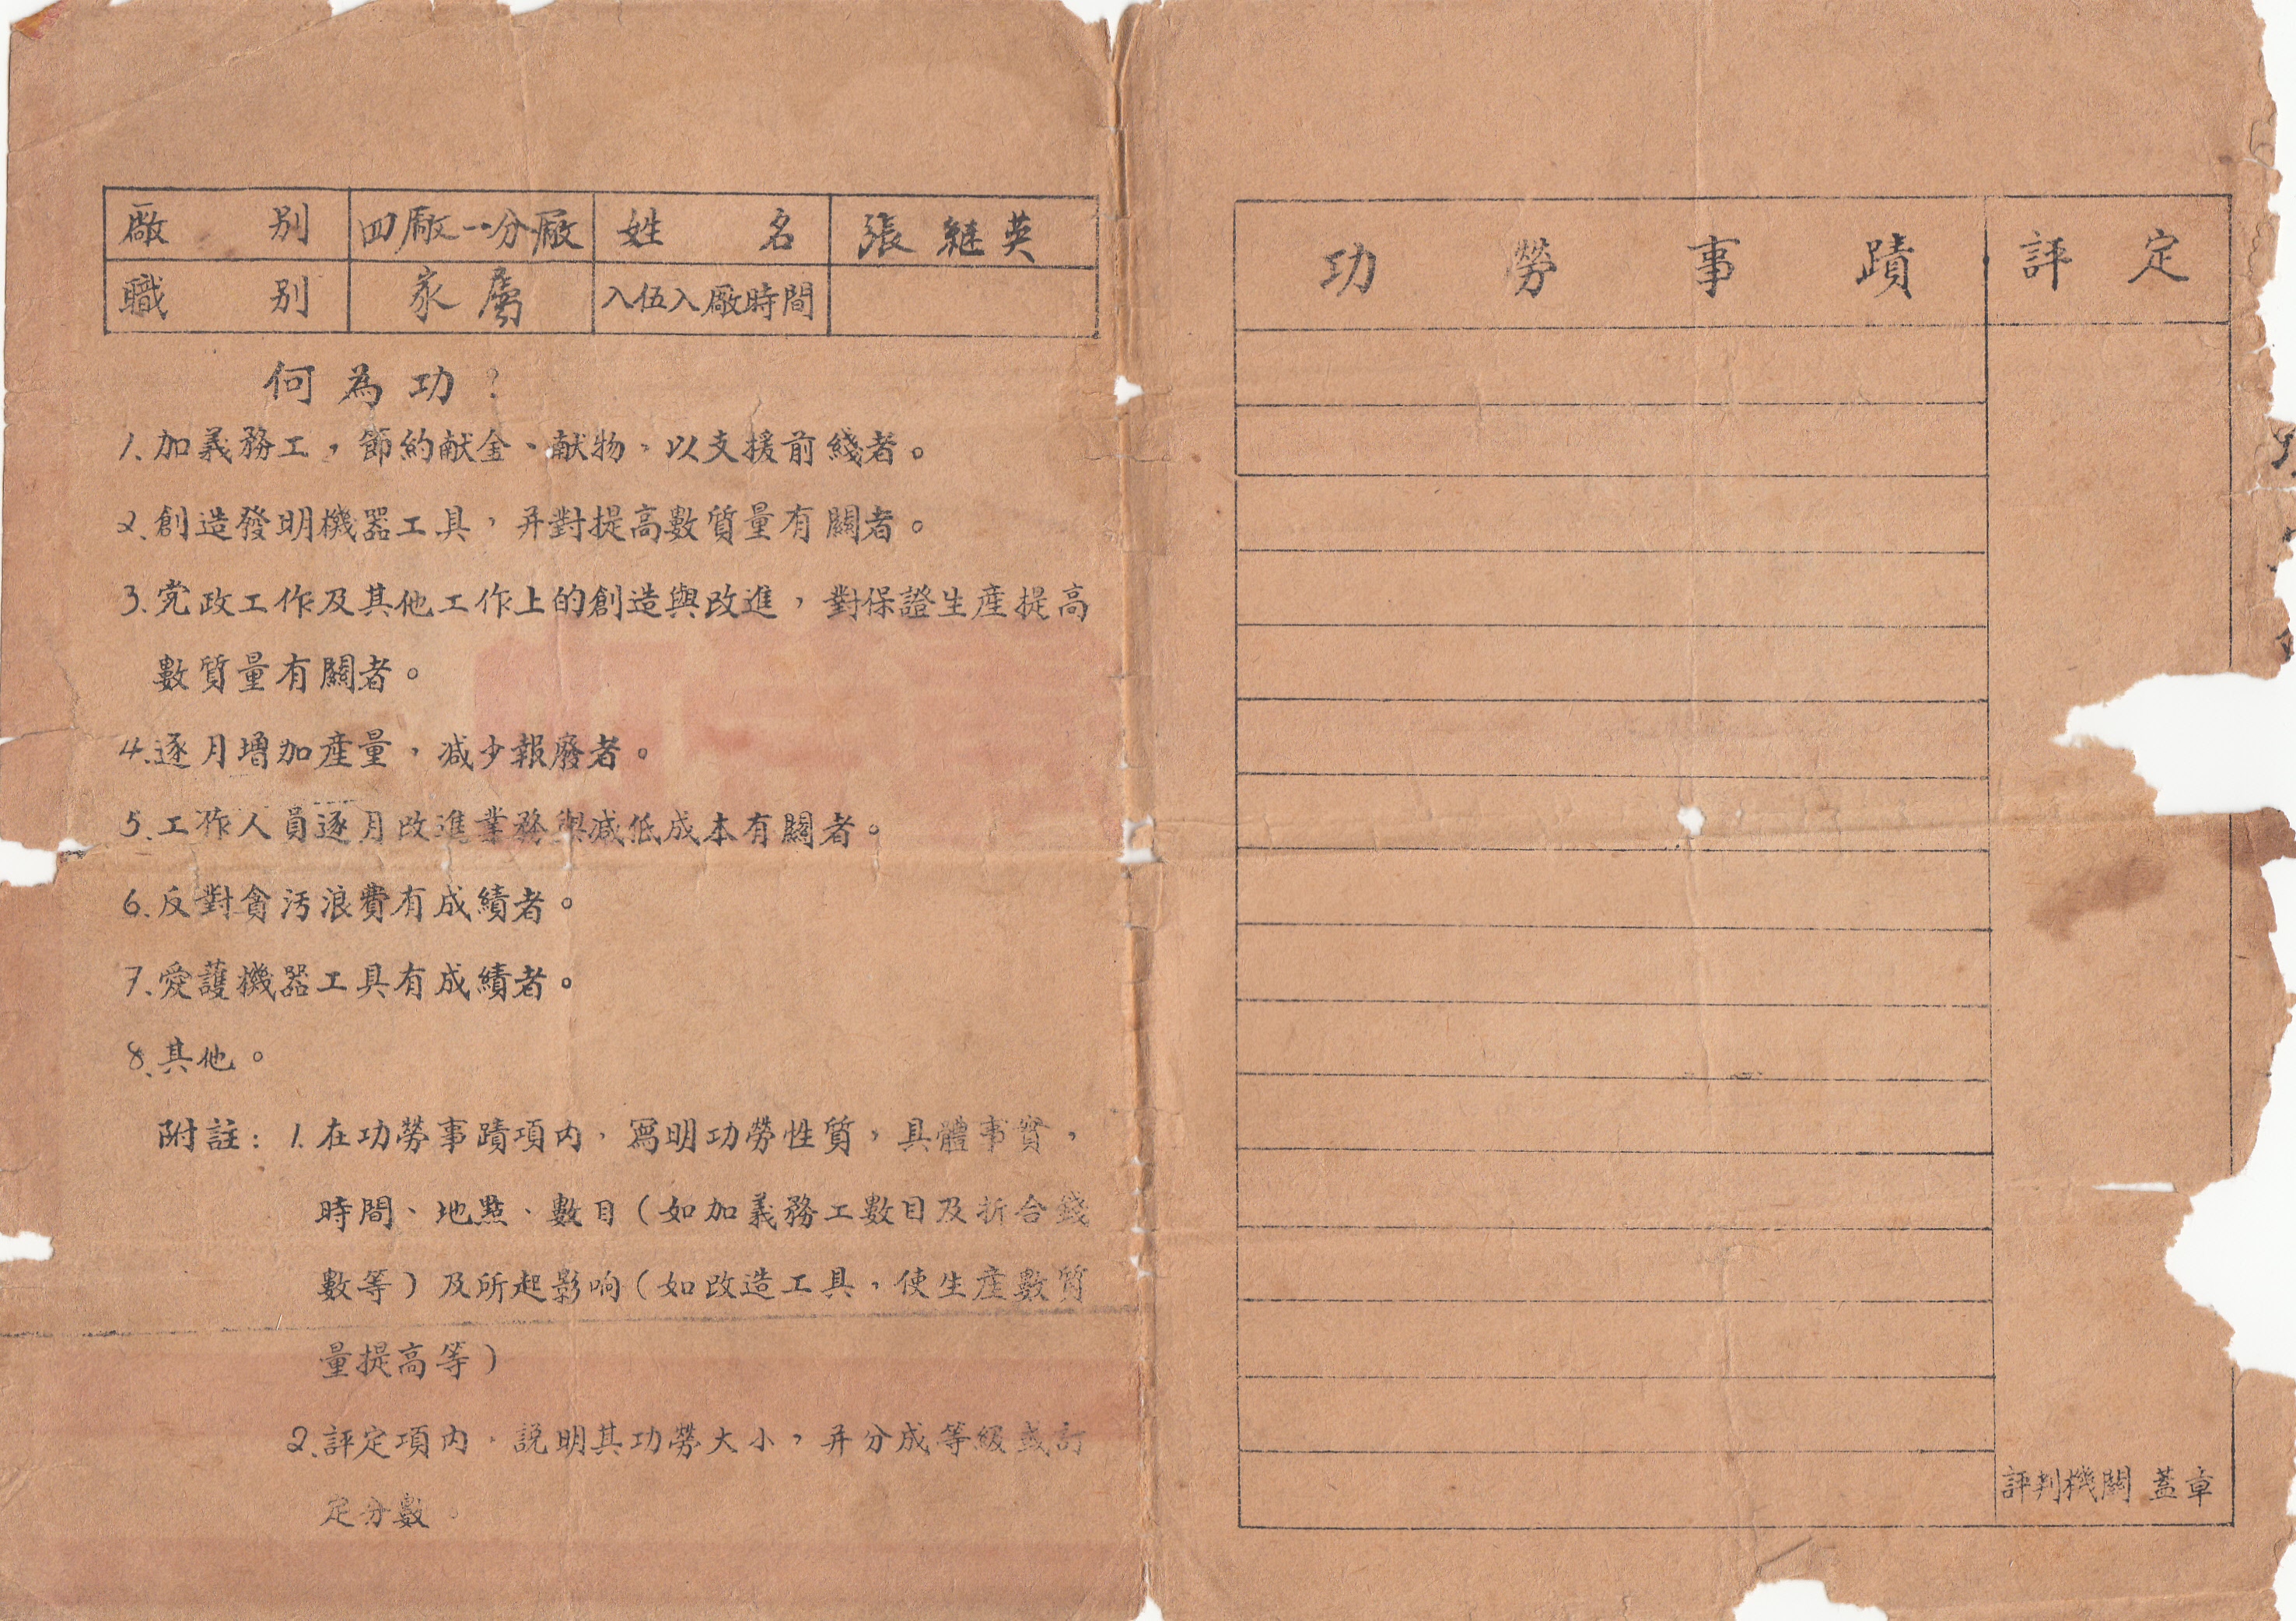 廠別 四廠一分廠 姓名 張継英
職別 家屬 入伍入廠時間
何為功？
1.加義務工，節約献金、献物，以支援前綫者。
2.創造發明機器工具，并對提高數質量有關者。
3.党政工作及其他工作上的創造與改進，對保證生産提高
數質量有關者。
4.逐月增加産量，减少報廢者。
5.工作人員逐月改進業務與减低成本有關者。
6.反對貪污浪費有成績者。
7.愛護機器工具有成績者。
8.其他。
附註：1.在功勞事蹟項内，寫明功勞性質，具體事實，
時間、地點、數目（如加義務工數目及折合錢
數等）及所起影响（如改造工具，使生産數質
量提高等）
2.評定項内，説明其功勞大小，并分成等級或訂
定分數。
功勞事蹟 評定
評判機關 蓋章